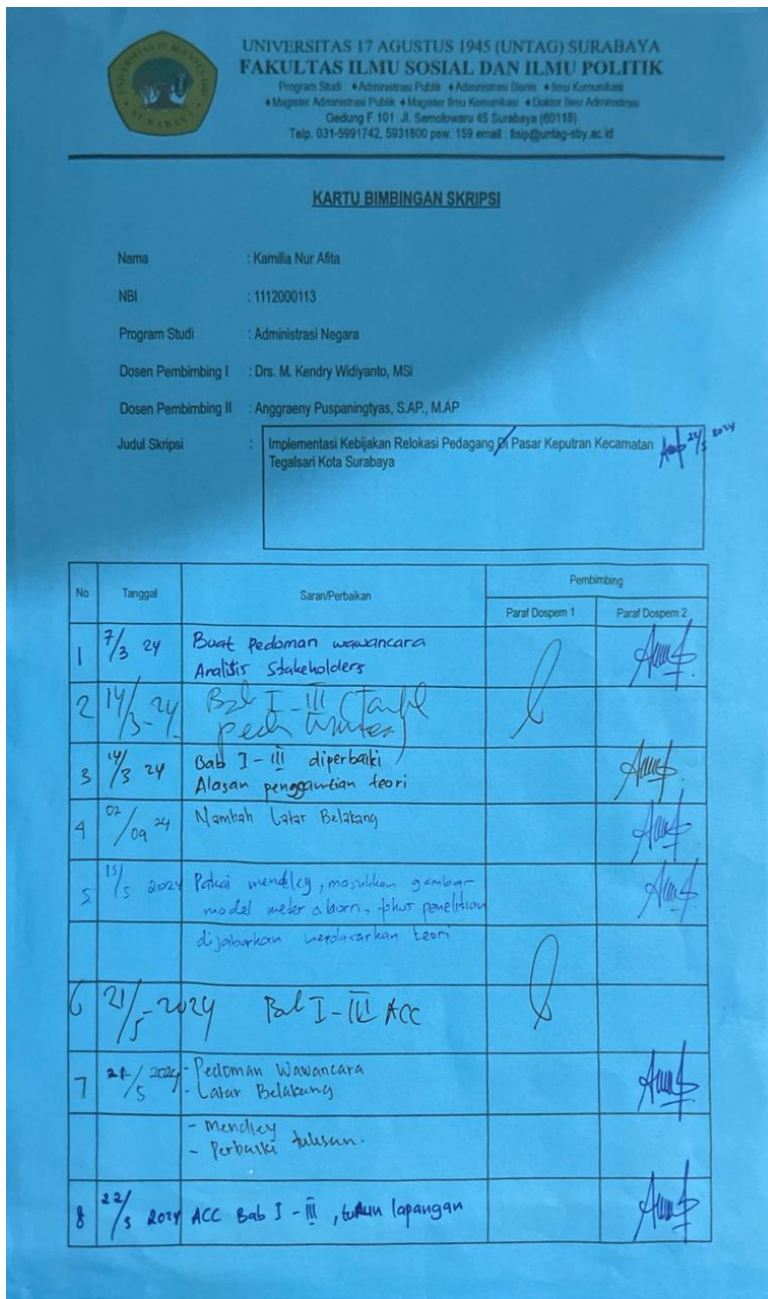 UNIVERSITAS 17 AGUSTUS 1945 (UNTAG) SURABAYA
FAKULTAS ILMU SOSIAL DAN ILMU POLITIK
Program Studi : ♦Administrasi Publik ♦Administrasi Bisnis ♦Ilmu Komunikasi
♦Magister Administrasi Publik ♦Magister Ilmu Komunikasi ♦Doktor Ilmu Administrasi
Gedung F 101 Jl. Semolowaru 45 Surabaya (60118)
Telp. 031-5991742, 5931800 psw. 159 email : fisip@untag-sby.ac.id
KARTU BIMBINGAN SKRIPSI
Nama : Kamilia Nur Afita
NBI : 1112000113
Program Studi : Administrasi Negara
Dosen Pembimbing I : Drs. M. Kendry Widiyanto, MSi
Dosen Pembimbing II : Anggraeny Puspaningtyas, S.AP., M.AP
Judul Skripsi : Implementasi Kebijakan Relokasi Pedagang Di Pasar Keputran Kecamatan
Tegalsari Kota Surabaya
22/5 2024
No Tanggal Saran/Perbaikan Pembimbing
Paraf Dospem 1 Paraf Dospem 2
1 7/3 24 Buat Pedoman wawancara
Analisis Stakeholders
2 14/3-24 Bab I - III
3 14/3 24 Bab I - III diperbaiki
Alasan penggantian teori
4 02/04 24 Nambah Latar Belakang
5 15/5 2024 Pakai mendley, masukkan gambar
model meter a born, fokus penelitian
dijabarkan berdasarkan teori
6 21/5-2024 Bab I - III ACC
7 21/5 2024 - Pedoman Wawancara
- Latar Belakang
- Mendley
- Perbaiki tulisan.
8 22/5 2024 ACC Bab I - III , turun lapangan